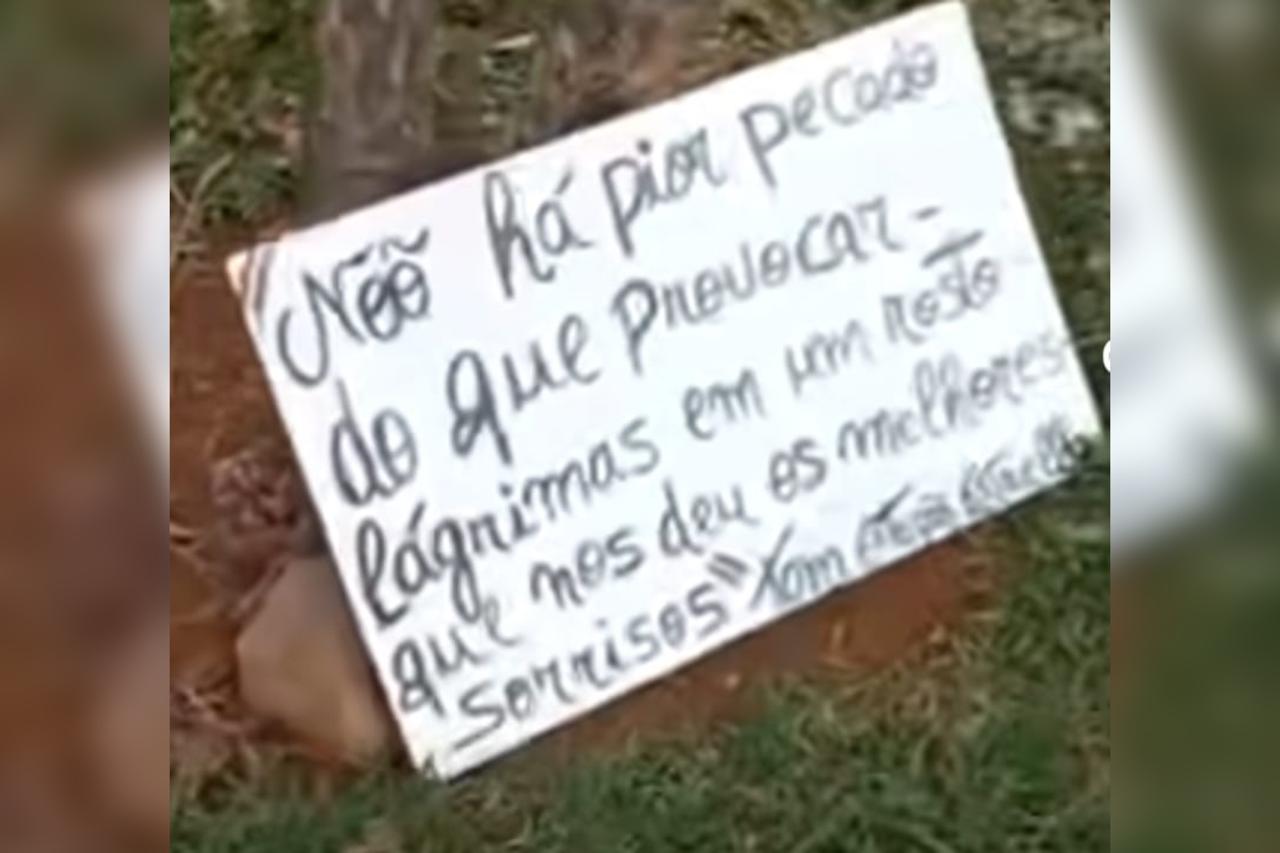 "Não há pior pecado
do que provocar-
lágrimas em um rosto
que nos deu os melhores
sorrisos"